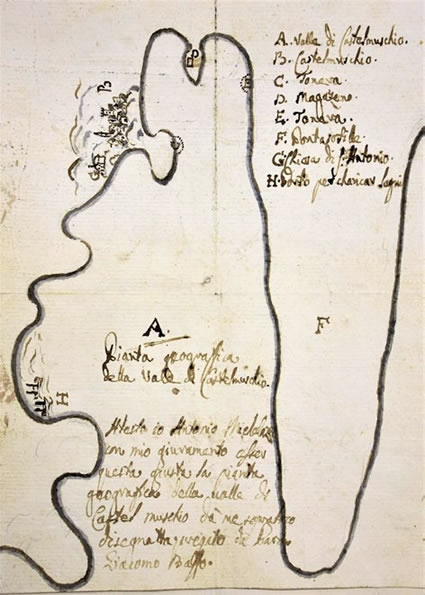 A. Valle di Castelmuschio.
B. Castelmuschio.
C. Tonera.
D. Magazeno.
E. Tonera.
F.
G. Chiesa di S. Antonio.
H. Porto per charicar Legni
B
D
E
A.
F
H
Pianta geografica
della Valle di Castelmuschio.
Atesto io Antonio
con mio giuramento esser
questa giusta la pianta
geografica della Valle di
Castel muschio da me
disegnatta,
Giacomo Baffo.